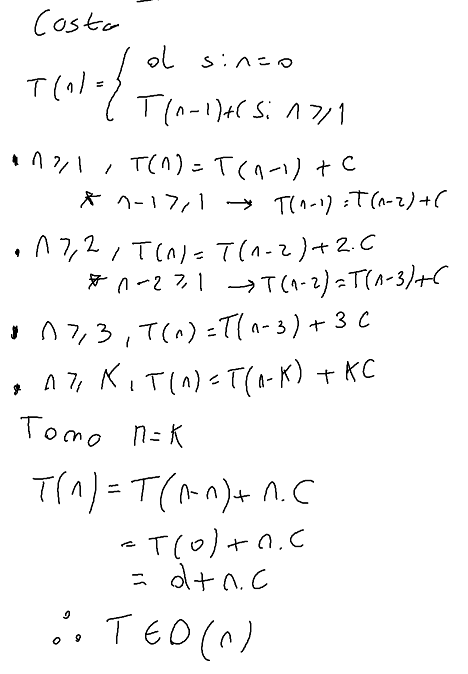 Costo
T(n) = { d si n=0
T(n-1)+C si n⩾1
• n⩾1, T(n) = T(n-1) + C
* n-1⩾1 → T(n-1) = T(n-2)+C
• n⩾2, T(n) = T(n-2)+2.C
* n-2⩾1 → T(n-2)=T(n-3)+C
• n⩾3, T(n) = T(n-3) + 3C
• n⩾K, T(n) = T(n-K) + KC
Tomo n=K
T(n) = T(n-n)+ n.C
= T(0) + n.C
= d + n.C
∴ T ∈ O(n)